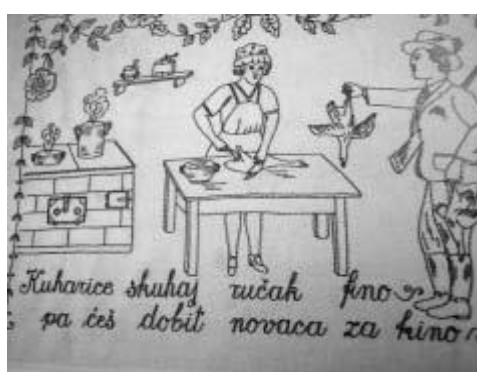 Kuharice skuhaj ručak fino
pa ćeš dobit novaca za kino